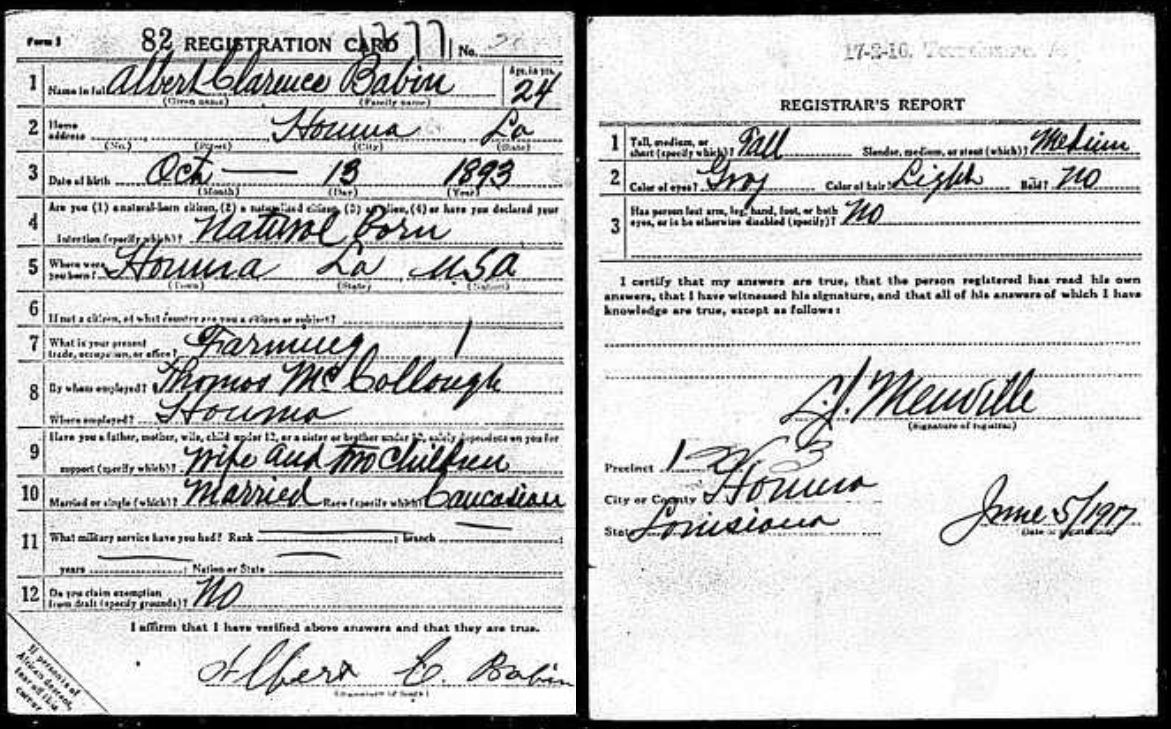 Form 1 82 REGISTRATION CARD No.
1 Name in full Albert Clarence Babin Age, in yrs. 24
(Given name) (Family name)
2 Home address Houma La
(No.) (Street) (City) (State)
3 Date of birth Oct — 13 1893
(Month) (Day) (Year)
4 Are you (1) a natural-born citizen, (2) a naturalized citizen, (3) an alien, (4) or have you declared your
intention (specify which)? Natural Born
5 Where were you born? Houma La USA
(Town) (State) (Nation)
6 If not a citizen, of what country are you a citizen or subject?
7 What is your present trade, occupation, or office? Farming 1
8 By whom employed? Thomas McCollough
Where employed? Houma
9 Have you a father, mother, wife, child under 12, or a sister or brother under 12, solely dependent on you for
support (specify which)? Wife and two Children
10 Married or single (which)? Married Race (specify which) Caucasian
11 What military service have you had? Rank ; branch ;
years ; Nation or State
12 Do you claim exemption from draft (specify grounds)? No
I affirm that I have verified above answers and that they are true.
Albert C. Babin
(Signature or mark)
If person is of
African descent,
tear off this
corner
17-2-16.
REGISTRAR'S REPORT
1 Tall, medium, or short (specify which)? Tall Slender, medium, or stout (which)? Medium
2 Color of eyes? Gray Color of hair? Light Bald? No
3 Has person lost arm, leg, hand, foot, or both eyes, or is he otherwise disabled (specify)? No
I certify that my answers are true, that the person registered has read his own
answers, that I have witnessed his signature, and that all of his answers of which I have
knowledge are true, except as follows:
L.J. Menville
(Signature of registrar)
Precinct 1 3
City or County Houma
State Louisiana June 5/1917
(Date of registration)